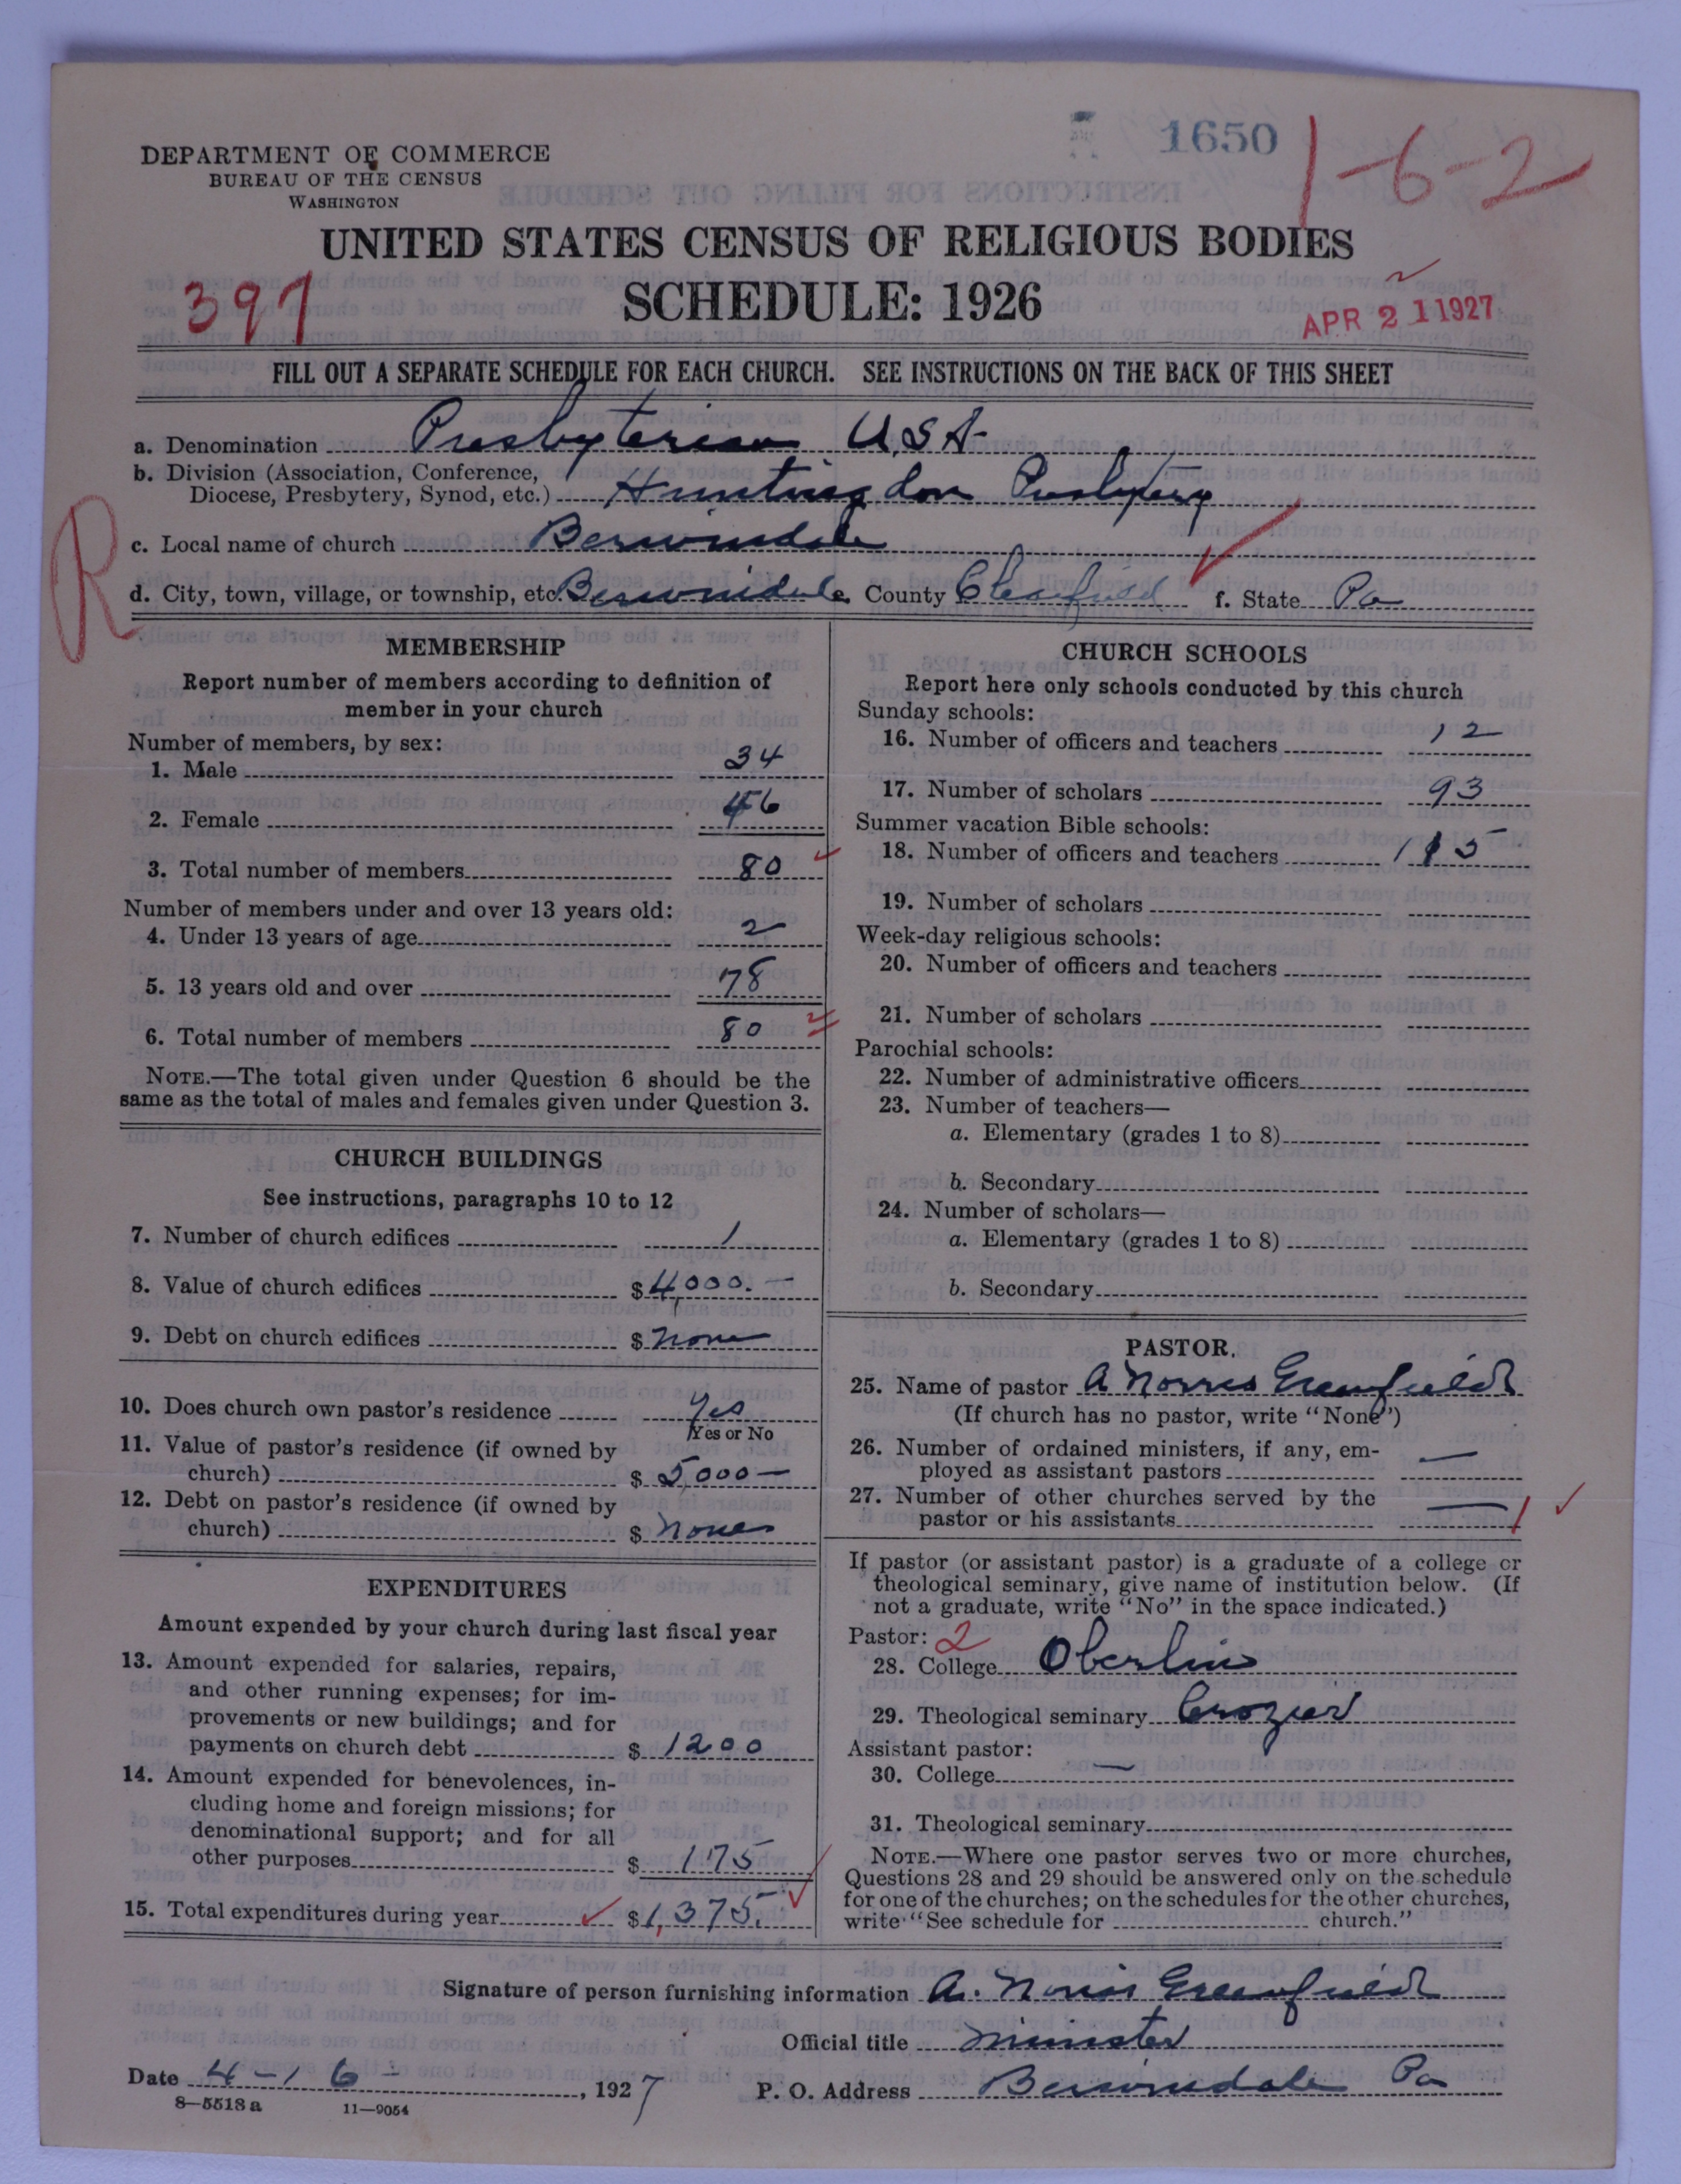 1650
1-6-2
DEPARTMENT OF COMMERCE
BUREAU OF THE CENSUS
WASHINGTON
UNITED STATES CENSUS OF RELIGIOUS BODIES
397
SCHEDULE: 1926
APR 21 1927
FILL OUT A SEPARATE SCHEDULE FOR EACH CHURCH. SEE INSTRUCTIONS ON THE BACK OF THIS SHEET
a. Denomination Presbyterian U.S.A.
b. Division (Association, Conference,
Diocese, Presbytery, Synod, etc.) Huntingdon Presbytery
R
c. Local name of church Berwinsdale
d. City, town, village, or township, etc. Berwinsdale County Clearfield f. State Pa
MEMBERSHIP
Report number of members according to definition of
member in your church
Number of members, by sex:
1. Male 34
2. Female 46
3. Total number of members 80
Number of members under and over 13 years old:
4. Under 13 years of age 2
5. 13 years old and over 78
6. Total number of members 80
NOTE.—The total given under Question 6 should be the
same as the total of males and females given under Question 3.
CHURCH BUILDINGS
See instructions, paragraphs 10 to 12
7. Number of church edifices 1
8. Value of church edifices $ 4,000.—
9. Debt on church edifices $ none
10. Does church own pastor's residence yes
Yes or No
11. Value of pastor's residence (if owned by
church) $ 5,000—
12. Debt on pastor's residence (if owned by
church) $ none
EXPENDITURES
Amount expended by your church during last fiscal year
13. Amount expended for salaries, repairs,
and other running expenses; for im-
provements or new buildings; and for
payments on church debt $ 1200
14. Amount expended for benevolences, in-
cluding home and foreign missions; for
denominational support; and for all
other purposes $ 175
15. Total expenditures during year $ 1,375.
CHURCH SCHOOLS
Report here only schools conducted by this church
Sunday schools:
16. Number of officers and teachers 12
17. Number of scholars 93
Summer vacation Bible schools:
18. Number of officers and teachers 115
19. Number of scholars
Week-day religious schools:
20. Number of officers and teachers
21. Number of scholars
Parochial schools:
22. Number of administrative officers
23. Number of teachers—
a. Elementary (grades 1 to 8)
b. Secondary
24. Number of scholars—
a. Elementary (grades 1 to 8)
b. Secondary
PASTOR.
25. Name of pastor A Norris Greenfield
(If church has no pastor, write "None")
26. Number of ordained ministers, if any, em-
ployed as assistant pastors —
27. Number of other churches served by the
pastor or his assistants — 1
If pastor (or assistant pastor) is a graduate of a college or
theological seminary, give name of institution below. (If
not a graduate, write "No" in the space indicated.)
Pastor: 2
28. College Oberlin
29. Theological seminary Crozier
Assistant pastor:
30. College —
31. Theological seminary
NOTE.—Where one pastor serves two or more churches,
Questions 28 and 29 should be answered only on the schedule
for one of the churches; on the schedules for the other churches,
write "See schedule for church."
Signature of person furnishing information A. Norris Greenfield
Official title Minister
Date 4-16-, 1927 P. O. Address Berwinsdale Pa
8—5518a 11—9054